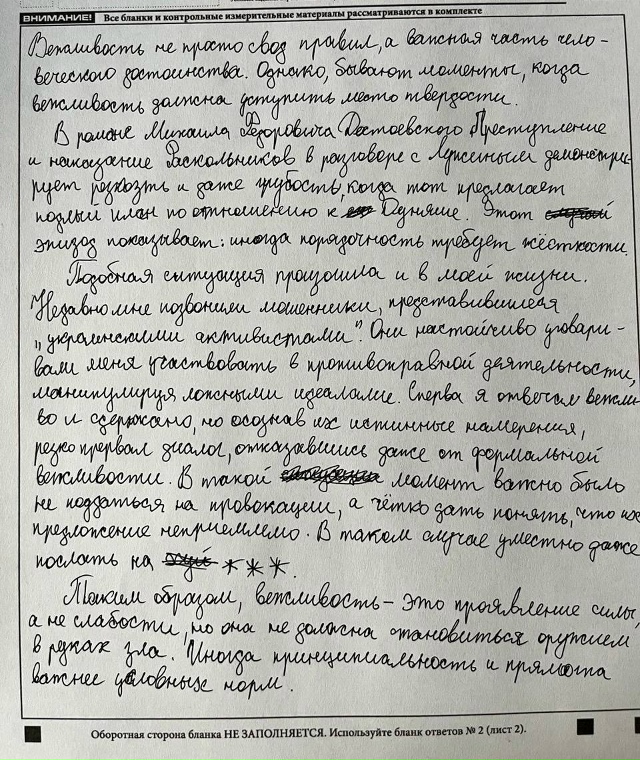 ВНИМАНИЕ! Все бланки и контрольные измерительные материалы рассматриваются в комплекте
Вежливость не просто свод правил, а важная часть чело-
веческого достоинства. Однако, бывают моменты, когда
вежливость должна уступить место твердости.
В романе Михаила Фёдоровича Достоевского Преступление
и наказание Раскольников в разговоре с Лужиным демонстри-
рует резкозть и даже грубость, когда тот предлагает
подлый план по отношению к Дуняше. Этот
эпизод показывает: иногда порядочность требует жёсткости.
Подобная ситуация произошла и в моей жизни.
Недавно мне позвонили мошенники, представившиеся
"украинскими активистами". Они настойчиво уговари-
вали меня участвовать в противоправной деятельности,
манипулируя ложными идеалами. Сперва я отвечал вежли-
во и сдержано, но осознав их истинные намерения,
резко прервал диалог, отказавшись даже от формальной
вежливости. В такой момент важно было
не поддаться на провокации, а чётко дать понять, что их
предложение неприемлемо. В таком случае уместно даже
послать на ***.
Таким образом, вежливость – это проявление силы,
а не слабости, но она не должна становиться оружием
в руках зла. Иногда принципиальность и прямота
важнее условных норм.
Оборотная сторона бланка НЕ ЗАПОЛНЯЕТСЯ. Используйте бланк ответов № 2 (лист 2).